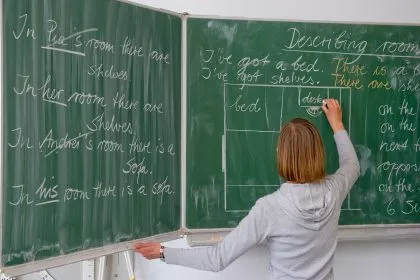 In Pea's room there are
shelves.
In her room there are
shelves.
In Andrei's room there is a
sofa.
In his room there is a sofa.
Describing room
I've got a bed. There is a b
I've got shelves. There are shel
bed
desk
on the
on the
next t
opposi
on the
6 S